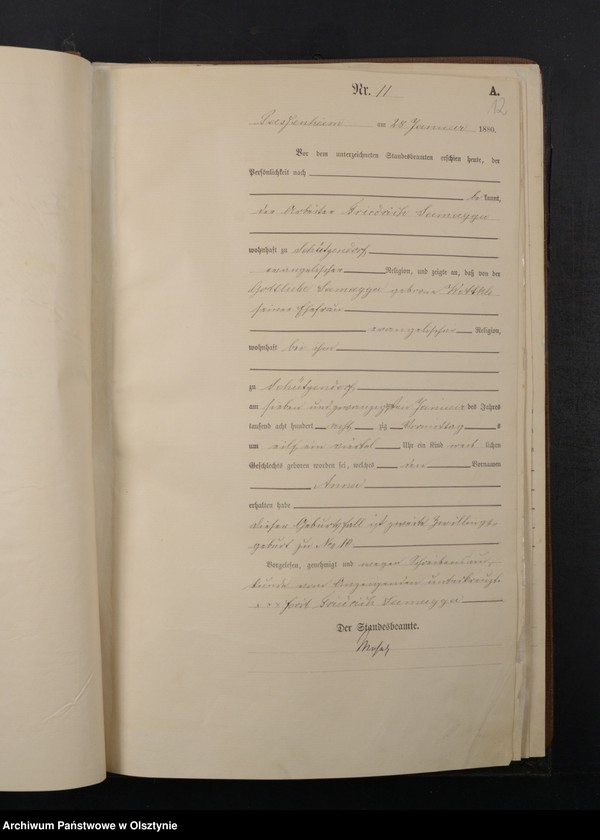 Nr. 11
A.
12
am 28 Januar 1880.
Vor dem unterzeichneten Standesbeamten erschien heute, der
Persönlichkeit nach
be kannt,
der Arbeiter Friedrich
wohnhaft zu Schützendorf
evangelischer Religion, und zeigte an, daß von der
Gottliebe geborne
seiner Ehefrau
evangelischer Religion,
wohnhaft bei ihm
zu Schützendorf
am sieben und zwanzigsten Januar des Jahres
tausend acht hundert acht zig Vormittag s
um elf ein viertel Uhr ein Kind weib lichen
Geschlechts geboren worden sei, welches den Vornamen
Anna
erhalten habe
dieser Geburtsfall ist zweite Zwillings-
geburt zu No 10
Vorgelesen, genehmigt und wegen Schreibensun-
kunde vom unterkreuzt
+++ Friedrich
Der Standesbeamte.
Archiwum Państwowe w Olsztynie